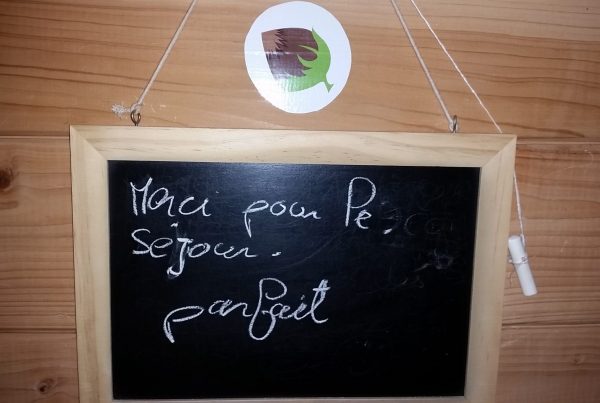 Merci pour Pe.
séjour.
parfait